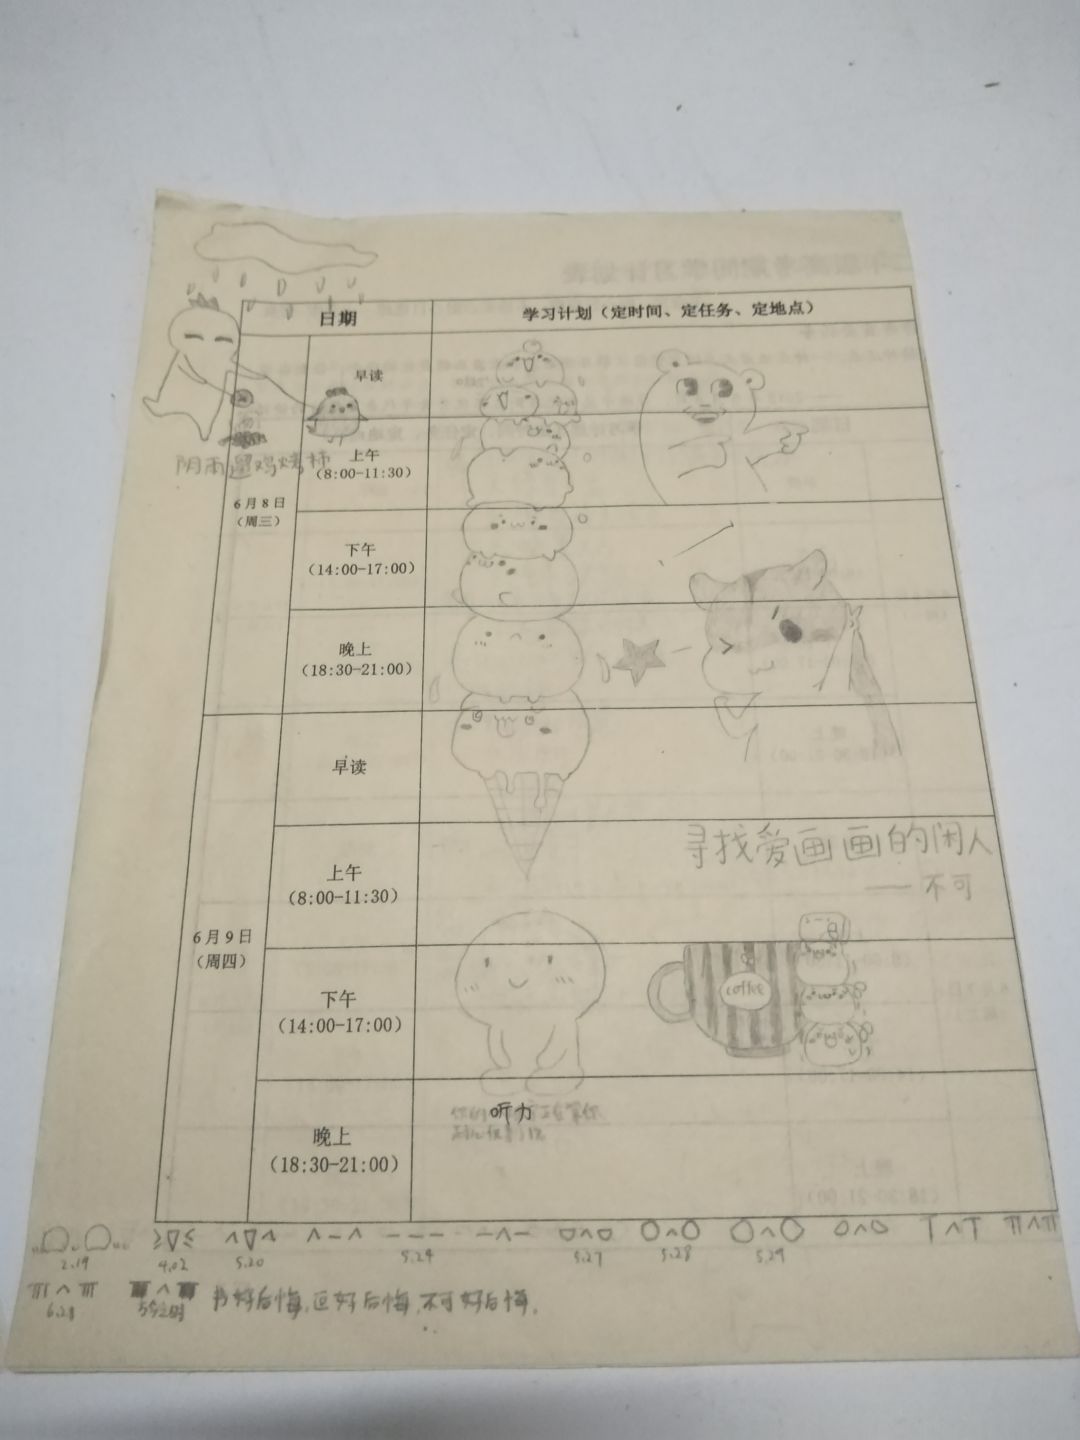 日期
学习计划（定时间、定任务、定地点）
早读
阴雨遛鸡烤柿
上午
（8:00-11:30）
6月8日
（周三）
下午
（14:00-17:00）
晚上
（18:30-21:00）
早读
寻找爱画画的闲人
—— 不可
上午
（8:00-11:30）
6月9日
（周四）
coffee
下午
（14:00-17:00）
听力
晚上
（18:30-21:00）
2.19 4.02 5.20 5.24 5.27 5.28 5.29
6.28
好后悔，好后悔，不可好后悔.